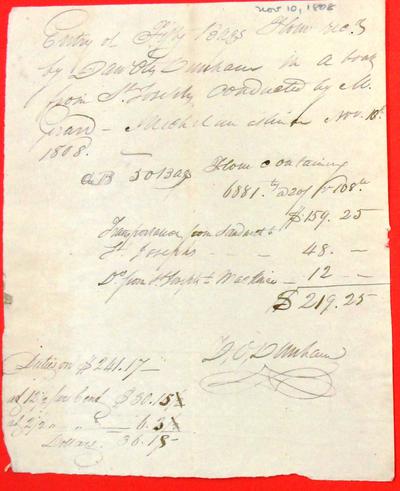 Nov 10, 1808
Entry of Fifty Bags Flour rec'd
by Danl Dunham in a boat
from St Joseph conducted by M.
Nov. 10th
1808. —
50 Bags Flour containing
6881 lbs @ 20/ pr 108 lb
$159.25
Transportation from Sanduct to
St Josephs - - - 48. —
Do from St Joseph to — 12 —
$219.25
D. Dunham
Duties on $241.17 —
at 12 1/2 for bond $30.15
at 2 1/2 " " 6.3
Dollars 36.18